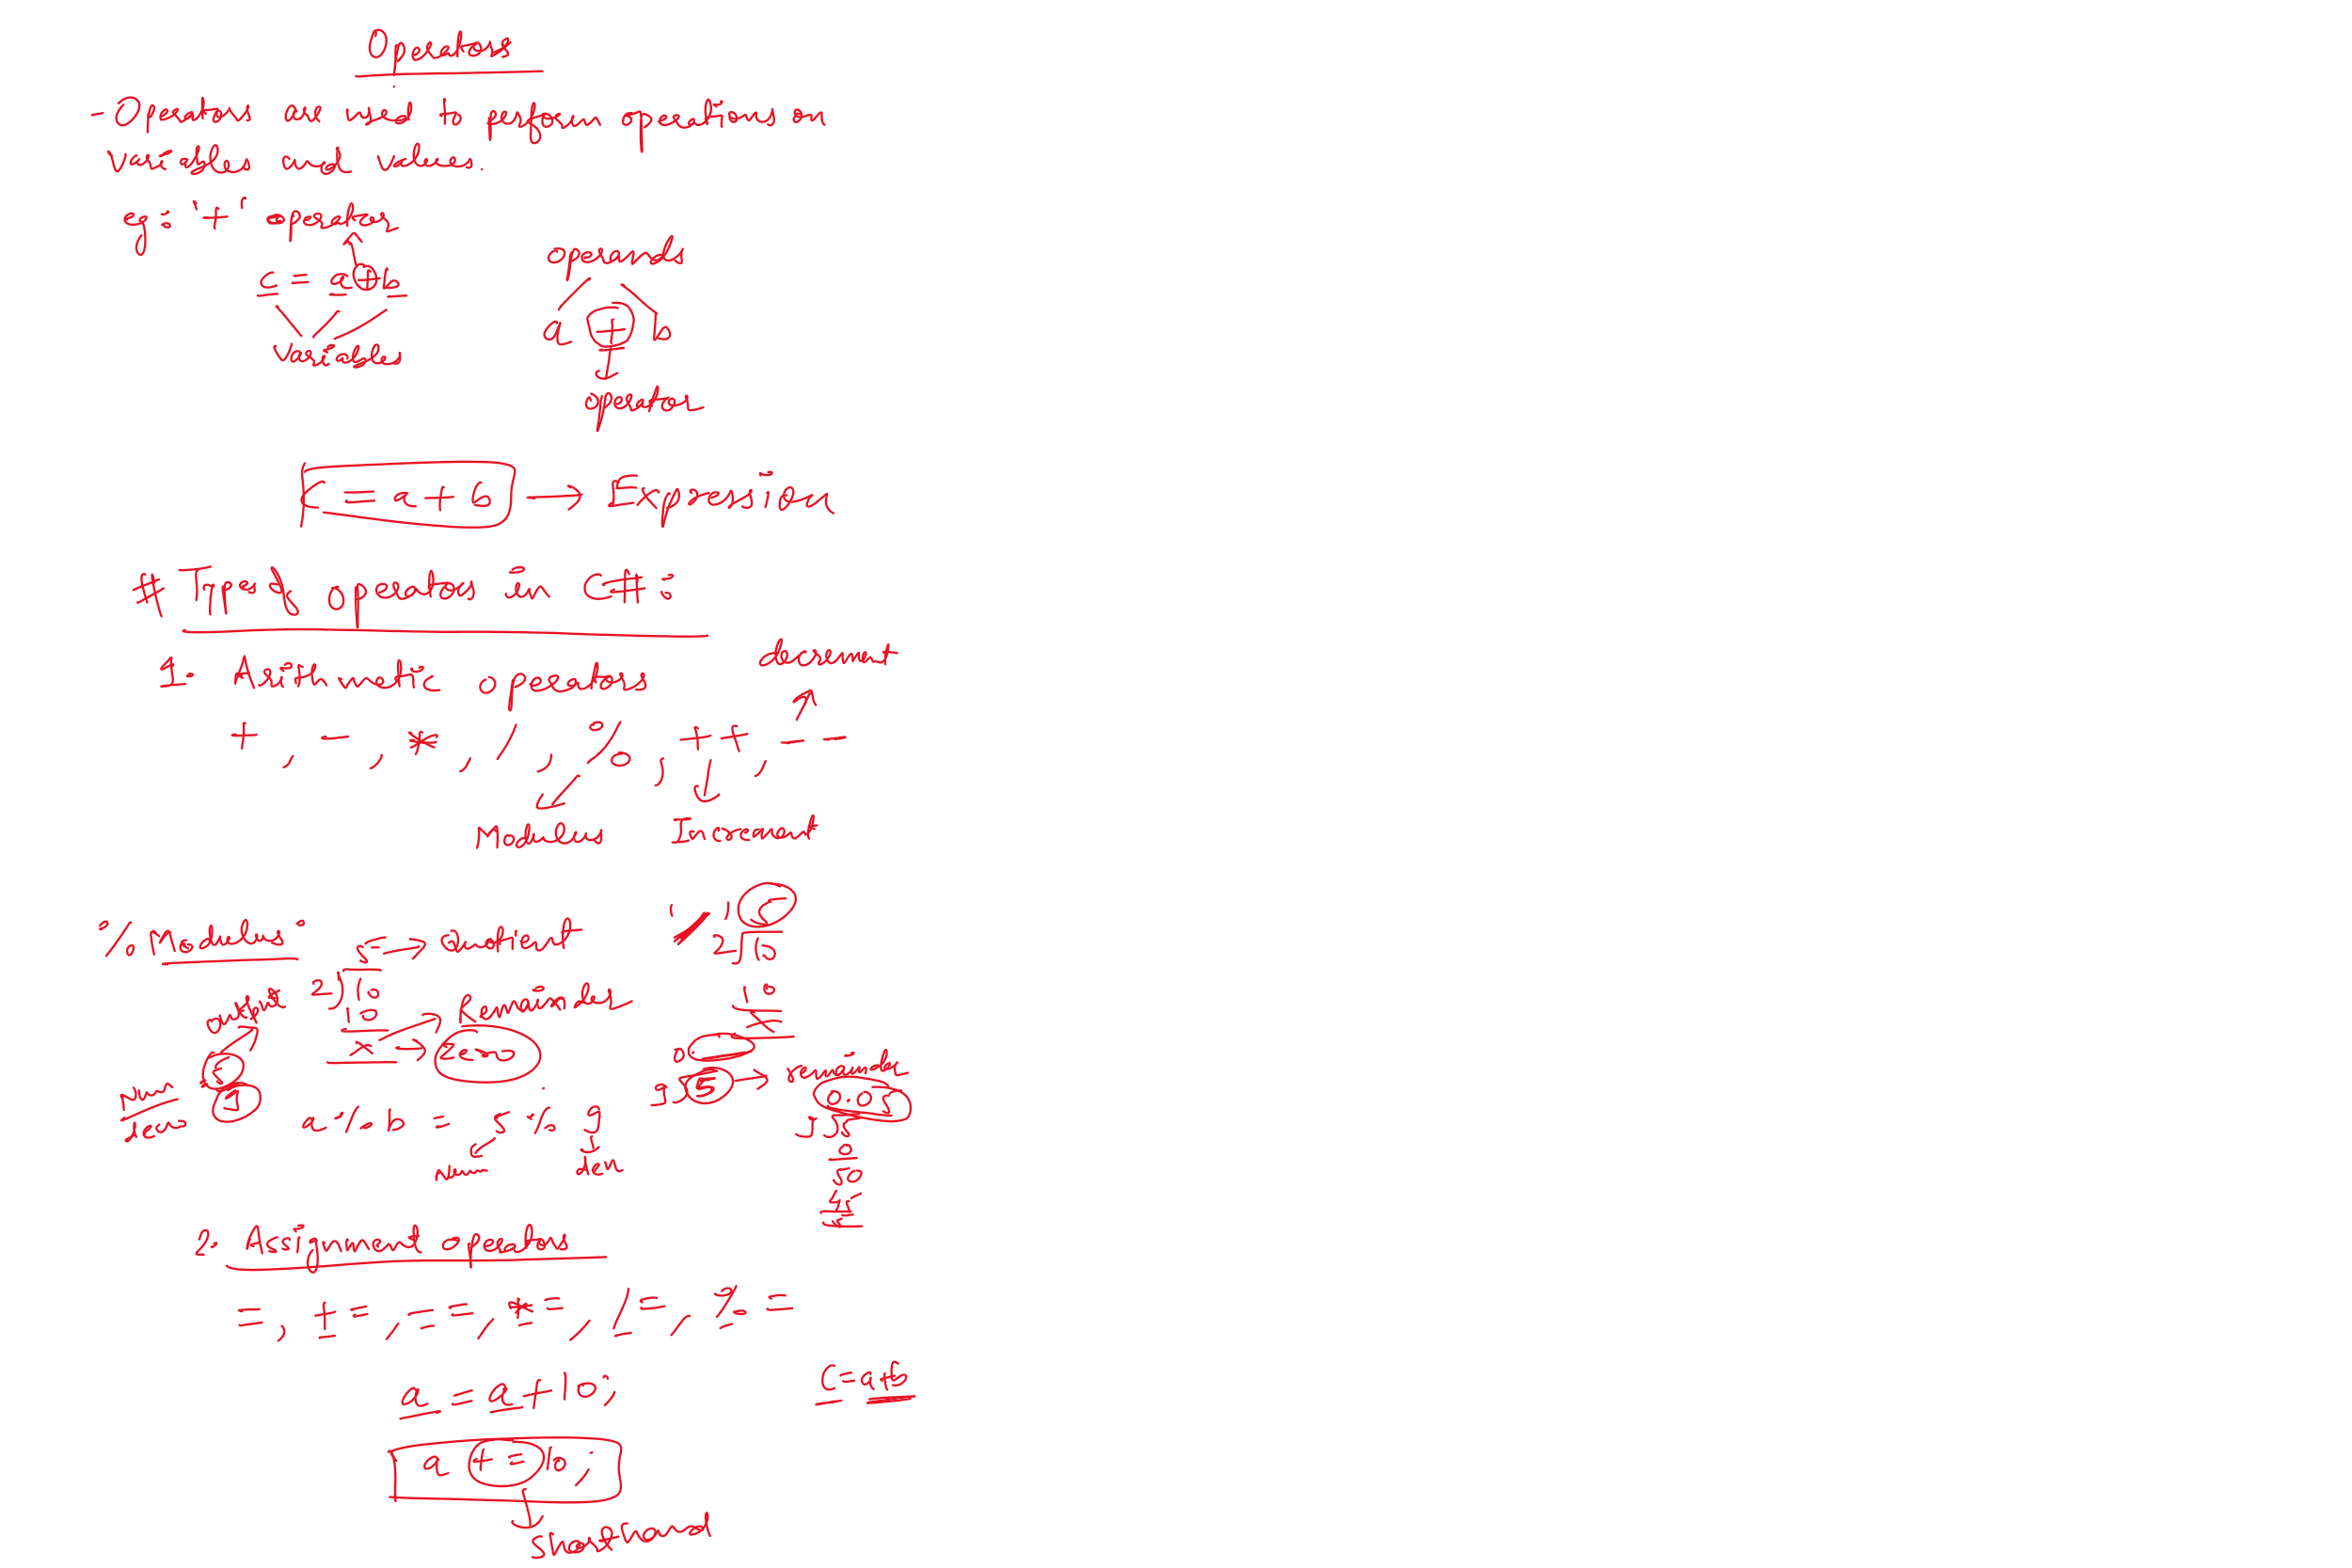 Operators
- Operators are used to perform operations on
variables and values.
eg: '+' operator
c = a + b
variables
operands
a + b
operator
c = a + b → Expression
# Types of operators in C#:
1. Arithmetic operators
decrement
+ , - , * , / , % , ++ , --
Modulus Increment
% Modulus:
5 → Quotient
2)10
10
× → Zero
Remainder
output
5
9
Num
deno
a % b = 5 % 9
Num den
'/' 5
2)10
10
×
0.
9)5 → remainder
0.05
9)5
0
50
45
5
2. Assignment operators
=, +=, -=, *=, /=, %=
a = a + 10;
c = a + b
a += 10;
shorthand